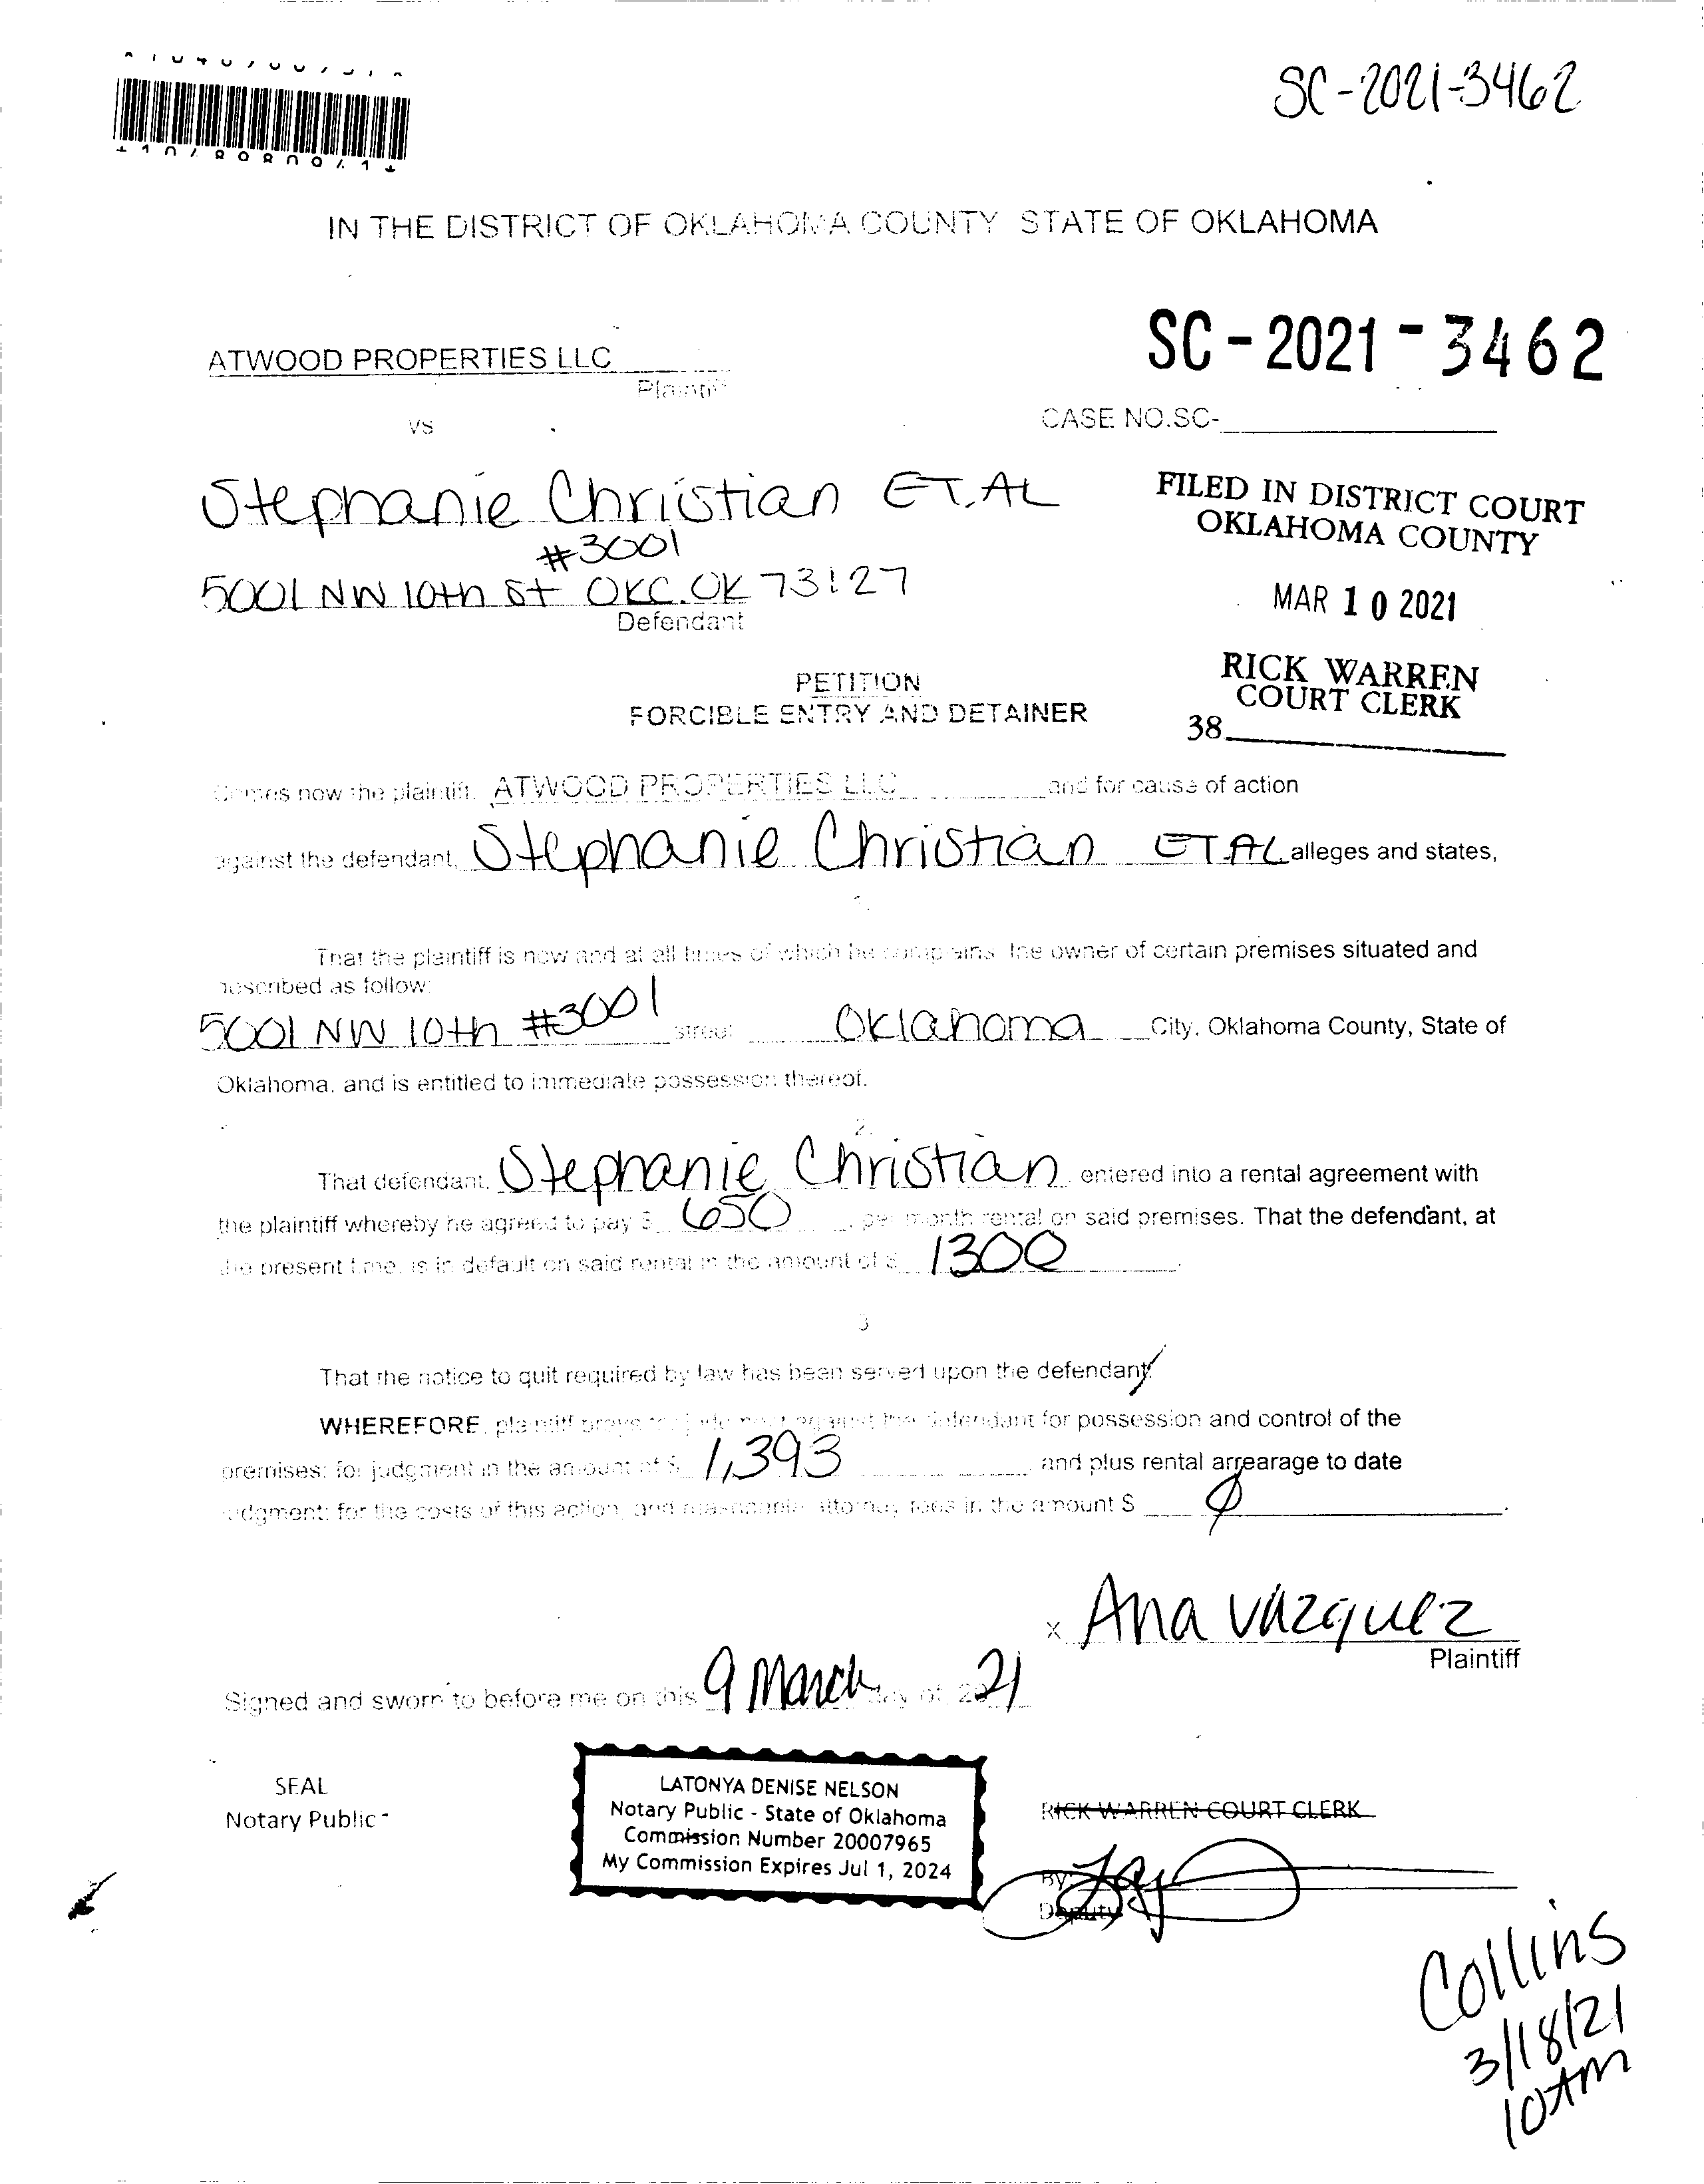 SC-2021-3462
IN THE DISTRICT OF OKLAHOMA COUNTY STATE OF OKLAHOMA
ATWOOD PROPERTIES LLC
Plaintiff
SC-2021-3462
vs
CASE NO.SC-
Stephanie Christian ET.AL
#3001
5001 NW 10th St OKC.OK 73127
Defendant
FILED IN DISTRICT COURT
OKLAHOMA COUNTY
MAR 10 2021
RICK WARREN
COURT CLERK
38
PETITION
FORCIBLE ENTRY AND DETAINER
Comes now the plaintiff, ATWOOD PROPERTIES LLC and for cause of action
against the defendant, Stephanie Christian ET AL alleges and states,
1.
That the plaintiff is now and at all times of which he complains the owner of certain premises situated and
described as follow:
5001 NW 10th #3001 street Oklahoma City, Oklahoma County, State of
Oklahoma, and is entitled to immediate possession thereof.
2.
That defendant, Stephanie Christian entered into a rental agreement with
the plaintiff whereby he agreed to pay $ 650 per month rental on said premises. That the defendant, at
the present time, is in default on said rental in the amount of $ 1300
3
That the notice to quit required by law has been served upon the defendant
WHEREFORE, plaintiff prays judgment against the defendant for possession and control of the
premises; for judgment in the amount of $ 1,393 and plus rental arrearage to date
judgment; for the costs of this action, and reasonable attorney fees in the amount $ 0
x Ana Vazquez
Plaintiff
Signed and sworn to before me on this 9 March day of, 2021
SEAL
Notary Public -
LATONYA DENISE NELSON
Notary Public - State of Oklahoma
Commission Number 20007965
My Commission Expires Jul 1, 2024
RICK WARREN COURT CLERK
By:
Deputy
Collins
3/18/21
10AM